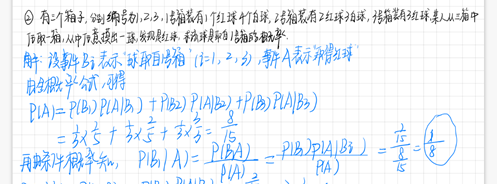 ② 有三个箱子,分别编号为1,2,3,1号箱装有1个红球4个白球,2号箱装有2红球3白球,3号箱装有3红球,某人从三箱中
任取一箱,从中任意摸出一球,发现是红球,求该球是取自1号箱的概率.
解:设事件Bi表示"球取自i号箱"(i=1,2,3),事件A表示取得红球
由全概率公式,可得
P(A)=P(B₁)P(A|B₁)+P(B₂)P(A|B₂)+P(B₃)P(A|B₃)
=1/3×1/5+1/3×2/5+1/3×3/3=8/15
再由条件概率知, P(B₁|A)=P(B₁A)/P(A)=P(B₁)P(A|B₁)/P(A)=(1/15)/(8/15)=1/8